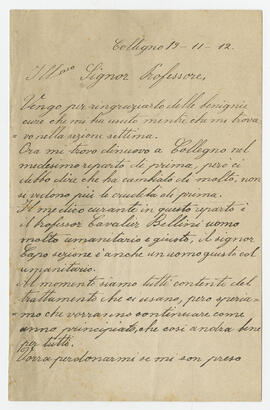 Collegno 19-11-12.
Ill.mo Signor Professore,
Vengo per ringraziarlo delle benignie
cure che mi ha usuto mentre che mi trova-
vo nella sezione settima.
Ora mi trovo di nuovo a Collegno nel
medesimo riparto di prima, però ci
debbo dire che ha cambiato di molto, non
si vedono più le crudeltà di prima.
Il medico curante in questo riparto è
il professor Cavalier Bellini uomo
molto umanitario e giusto, il signor
Capo sezione è anche un uomo giusto ed
umanitario.
Al momento siamo tutti contenti del
trattamento che ci usano, però speria-
mo che vorranno continuare come
anno principiato, che così andra bene
per tutti.
Vorra perdonarmi se mi son preso